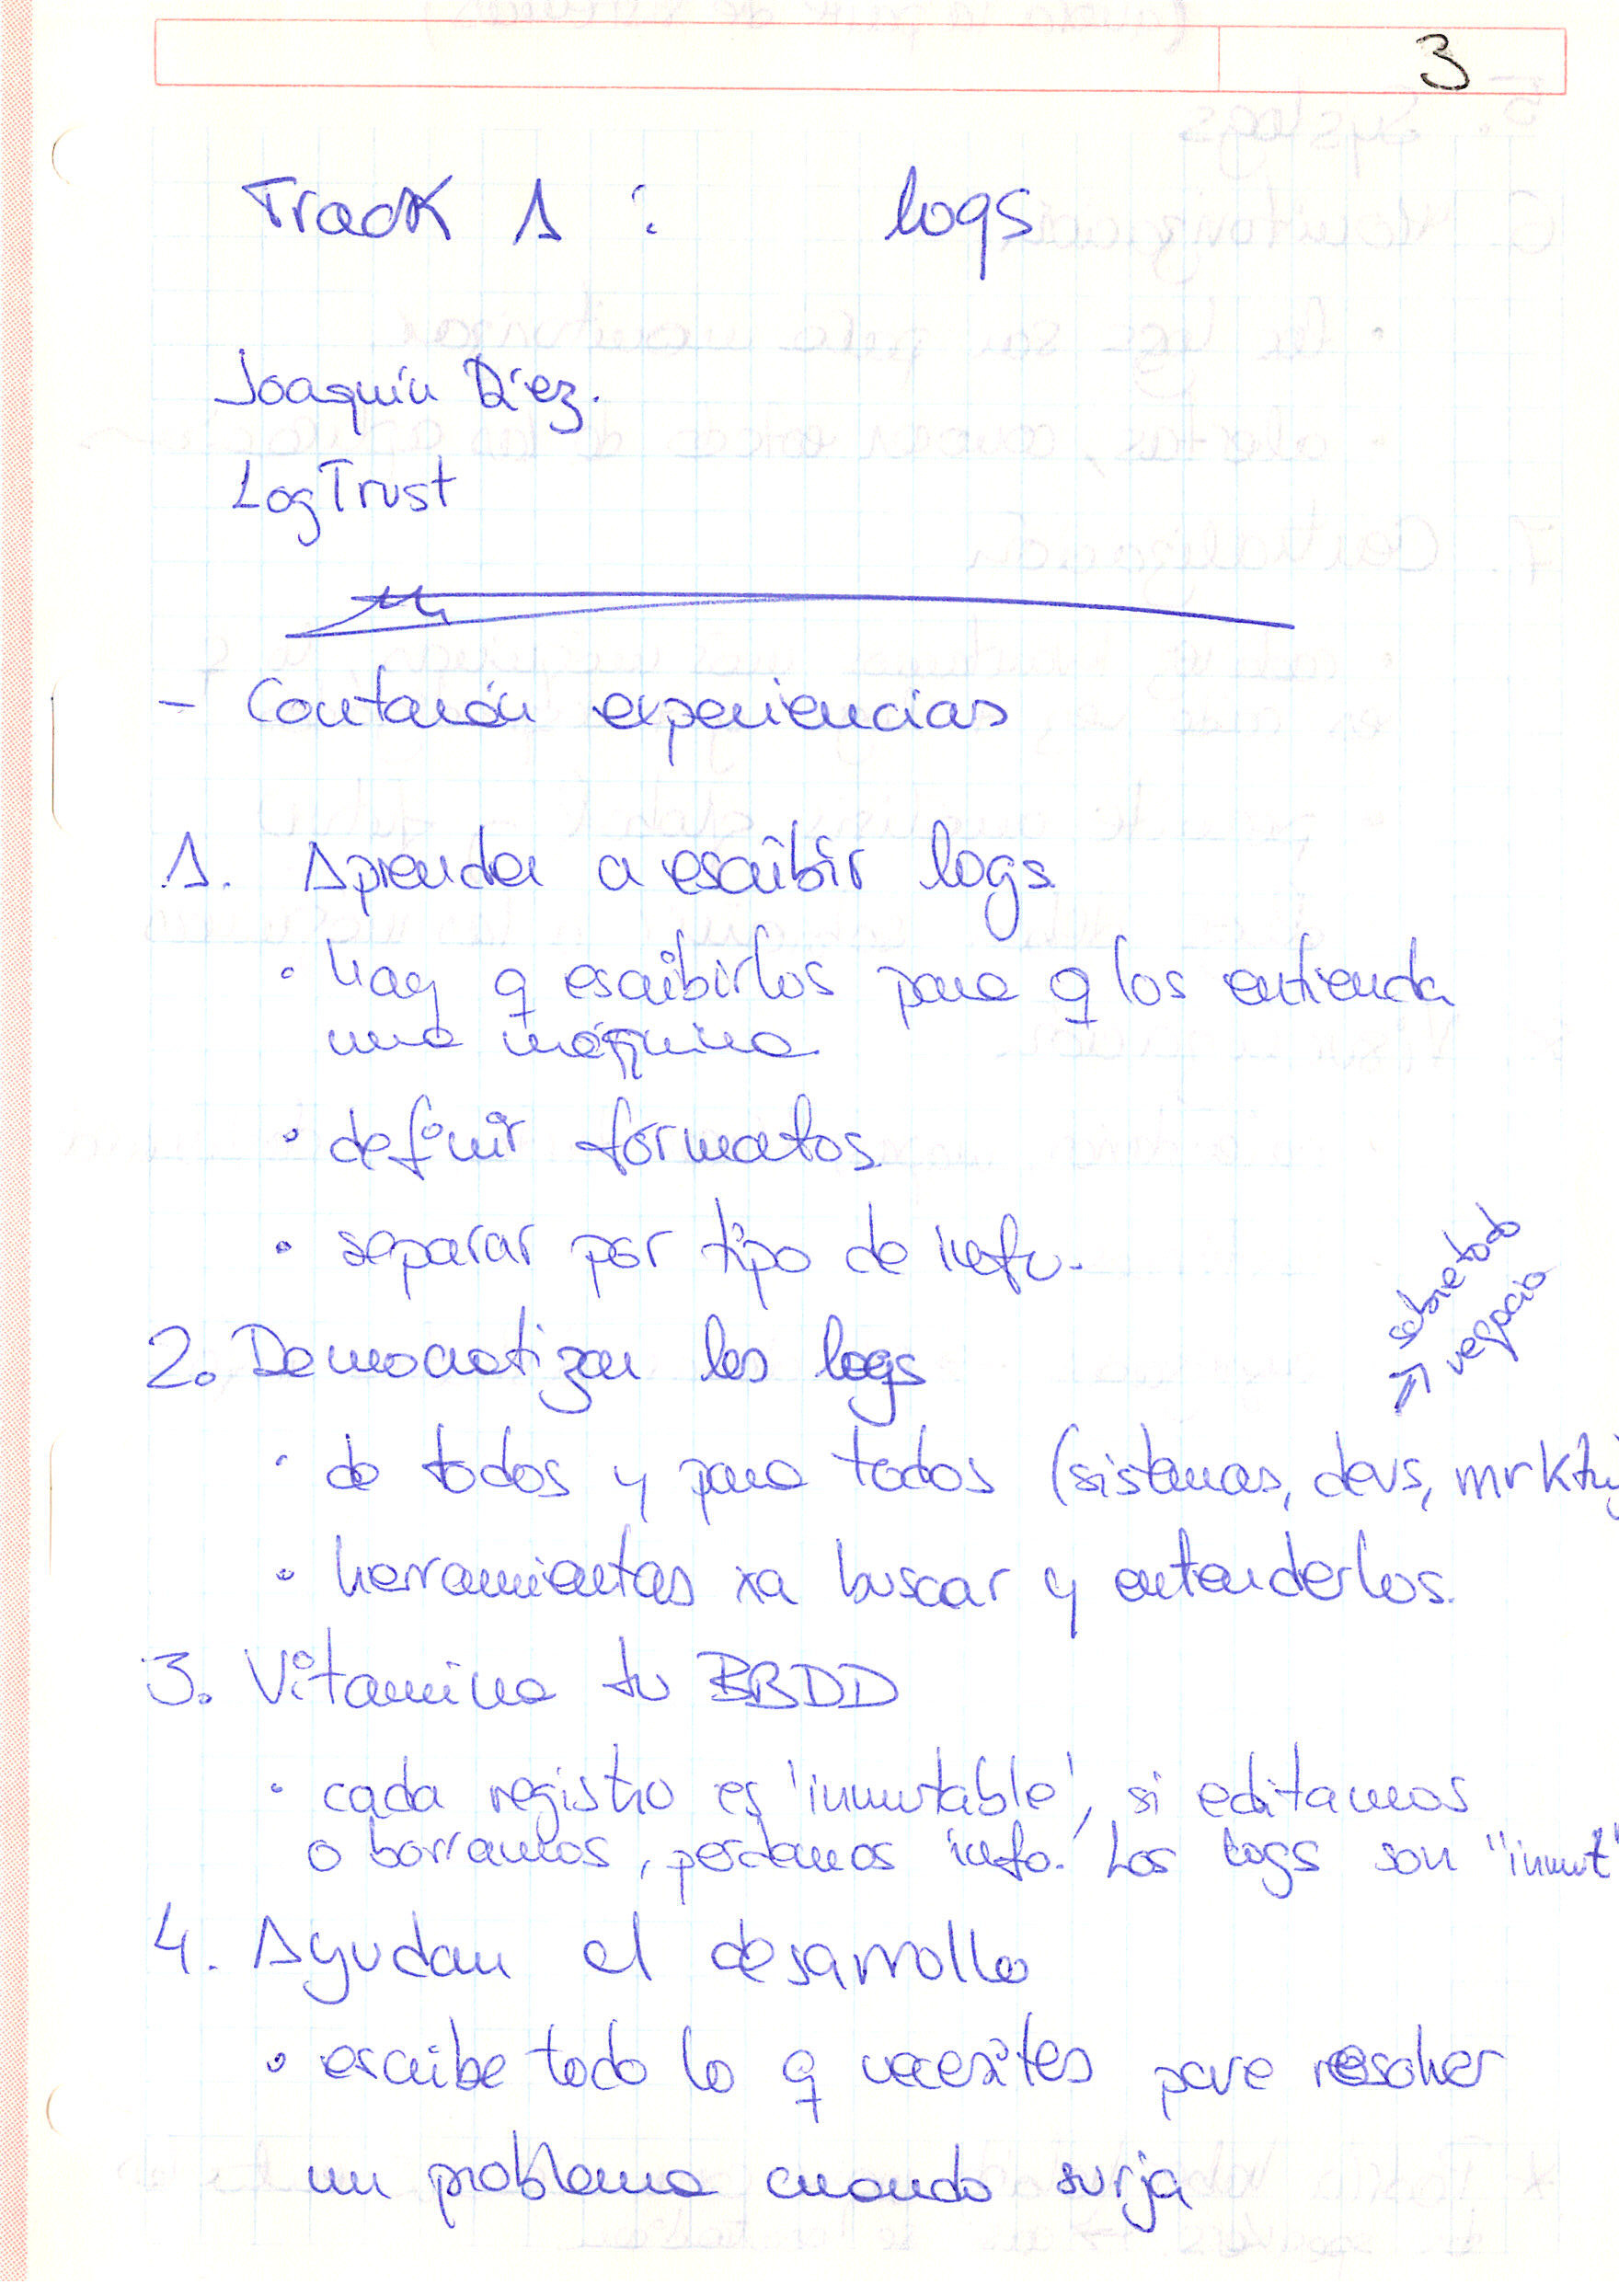 3
Track 1 : logs
Joaquín Díez.
LogTrust
- Contarán experiencias
1. Aprender a escribir logs
· hay q escribirlos para q los entienda
una máquina.
· definir formatos
· separar por tipo de info.
2. Democratizar los logs
sobre todo
negocio
· de todos y para todos (sistemas, devs, mrkt
· herramientas xa buscar y entenderlos.
3. Vitamina tu BBDD
· cada registro es 'inmutable', si editamos
o borramos, perdemos info. Los logs son "inmut"
4. Ayudan el desarrollo
· escribe todo lo q necesites para resolver
un problema cuando surja